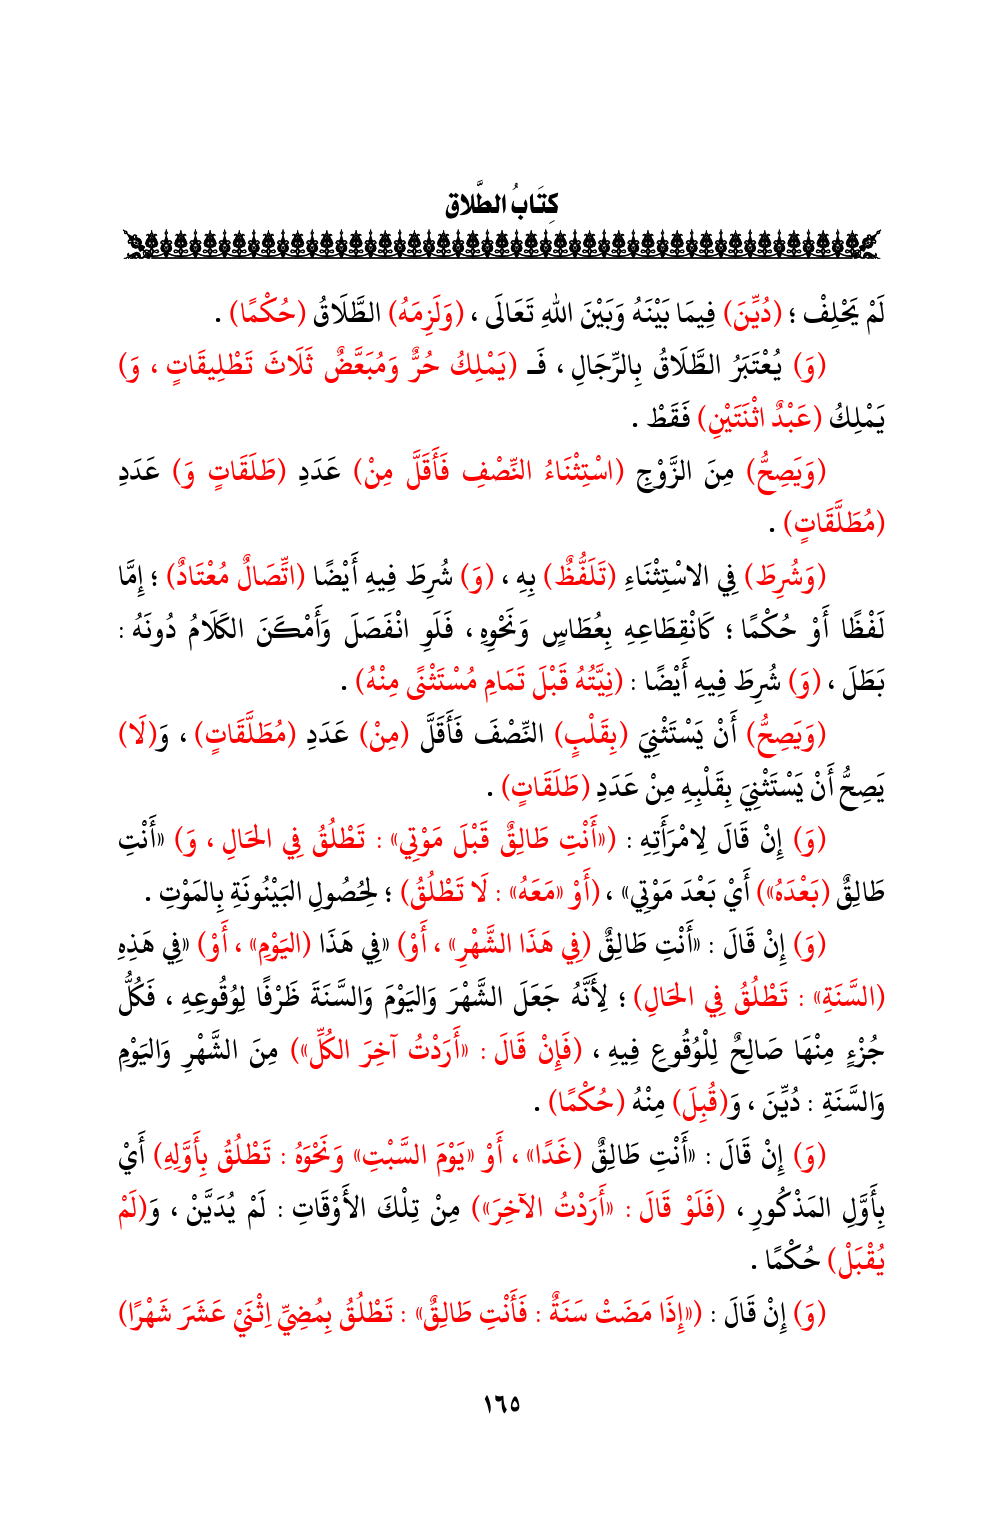 كِتَابُ الطَّلَاق
لَمْ يَحْلِفْ ؛ (دُيِّنَ) فِيمَا بَيْنَهُ وَبَيْنَ اللهِ تَعَالَى ، (وَلَزِمَهُ) الطَّلَاقُ (حُكْمًا) .
(وَ) يُعْتَبَرُ الطَّلَاقُ بِالرِّجَالِ ، فَـ (يَمْلِكُ حُرٌّ وَمُبَعَّضٌ ثَلَاثَ تَطْلِيقَاتٍ ، وَ)
يَمْلِكُ (عَبْدٌ اثْنَتَيْنِ) فَقَطْ .
(وَيَصِحُّ) مِنَ الزَّوْجِ (اسْتِثْنَاءُ النِّصْفِ فَأَقَلَّ مِنْ) عَدَدِ (طَلَقَاتٍ وَ) عَدَدِ
(مُطَلَّقَاتٍ) .
(وَشُرِطَ) فِي الاسْتِثْنَاءِ (تَلَفُّظٌ) بِهِ ، (وَ) شُرِطَ فِيهِ أَيْضًا (اتِّصَالٌ مُعْتَادٌ) ؛ إِمَّا
لَفْظًا أَوْ حُكْمًا ؛ كَانْقِطَاعِهِ بِعُطَاسٍ وَنَحْوِهِ ، فَلَوِ انْفَصَلَ وَأَمْكَنَ الكَلَامُ دُونَهُ :
بَطَلَ ، (وَ) شُرِطَ فِيهِ أَيْضًا : (نِيَّتُهُ قَبْلَ تَمَامِ مُسْتَثْنًى مِنْهُ) .
(وَيَصِحُّ) أَنْ يَسْتَثْنِيَ (بِقَلْبٍ) النِّصْفَ فَأَقَلَّ (مِنْ) عَدَدِ (مُطَلَّقَاتٍ) ، وَ(لَا)
يَصِحُّ أَنْ يَسْتَثْنِيَ بِقَلْبِهِ مِنْ عَدَدِ (طَلَقَاتٍ) .
(وَ) إِنْ قَالَ لِامْرَأَتِهِ : («أَنْتِ طَالِقٌ قَبْلَ مَوْتِي» : تَطْلُقُ فِي الحَالِ ، وَ) «أَنْتِ
طَالِقٌ (بَعْدَهُ») أَيْ بَعْدَ مَوْتِي» ، (أَوْ «مَعَهُ» : لَا تَطْلُقُ) ؛ لِحُصُولِ البَيْنُونَةِ بِالمَوْتِ .
(وَ) إِنْ قَالَ : «أَنْتِ طَالِقٌ (فِي هَذَا الشَّهْرِ» ، أَوْ) «فِي هَذَا (اليَوْمِ» ، أَوْ) «فِي هَذِهِ
(السَّنَةِ» : تَطْلُقُ فِي الحَالِ) ؛ لِأَنَّهُ جَعَلَ الشَّهْرَ وَاليَوْمَ وَالسَّنَةَ ظَرْفًا لِوُقُوعِهِ ، فَكُلُّ
جُزْءٍ مِنْهَا صَالِحٌ لِلْوُقُوعِ فِيهِ ، (فَإِنْ قَالَ : «أَرَدْتُ آخِرَ الكُلِّ») مِنَ الشَّهْرِ وَاليَوْمِ
وَالسَّنَةِ : دُيِّنَ ، وَ(قُبِلَ) مِنْهُ (حُكْمًا) .
(وَ) إِنْ قَالَ : «أَنْتِ طَالِقٌ (غَدًا» ، أَوْ «يَوْمَ السَّبْتِ» وَنَحْوَهُ : تَطْلُقُ بِأَوَّلِهِ) أَيْ
بِأَوَّلِ المَذْكُورِ ، (فَلَوْ قَالَ : «أَرَدْتُ الآخِرَ») مِنْ تِلْكَ الأَوْقَاتِ : لَمْ يُدَيَّنْ ، وَ(لَمْ
يُقْبَلْ) حُكْمًا .
(وَ) إِنْ قَالَ : («إِذَا مَضَتْ سَنَةٌ : فَأَنْتِ طَالِقٌ» : تَطْلُقُ بِمُضِيِّ اِثْنَيْ عَشَرَ شَهْرًا)
١٦٥